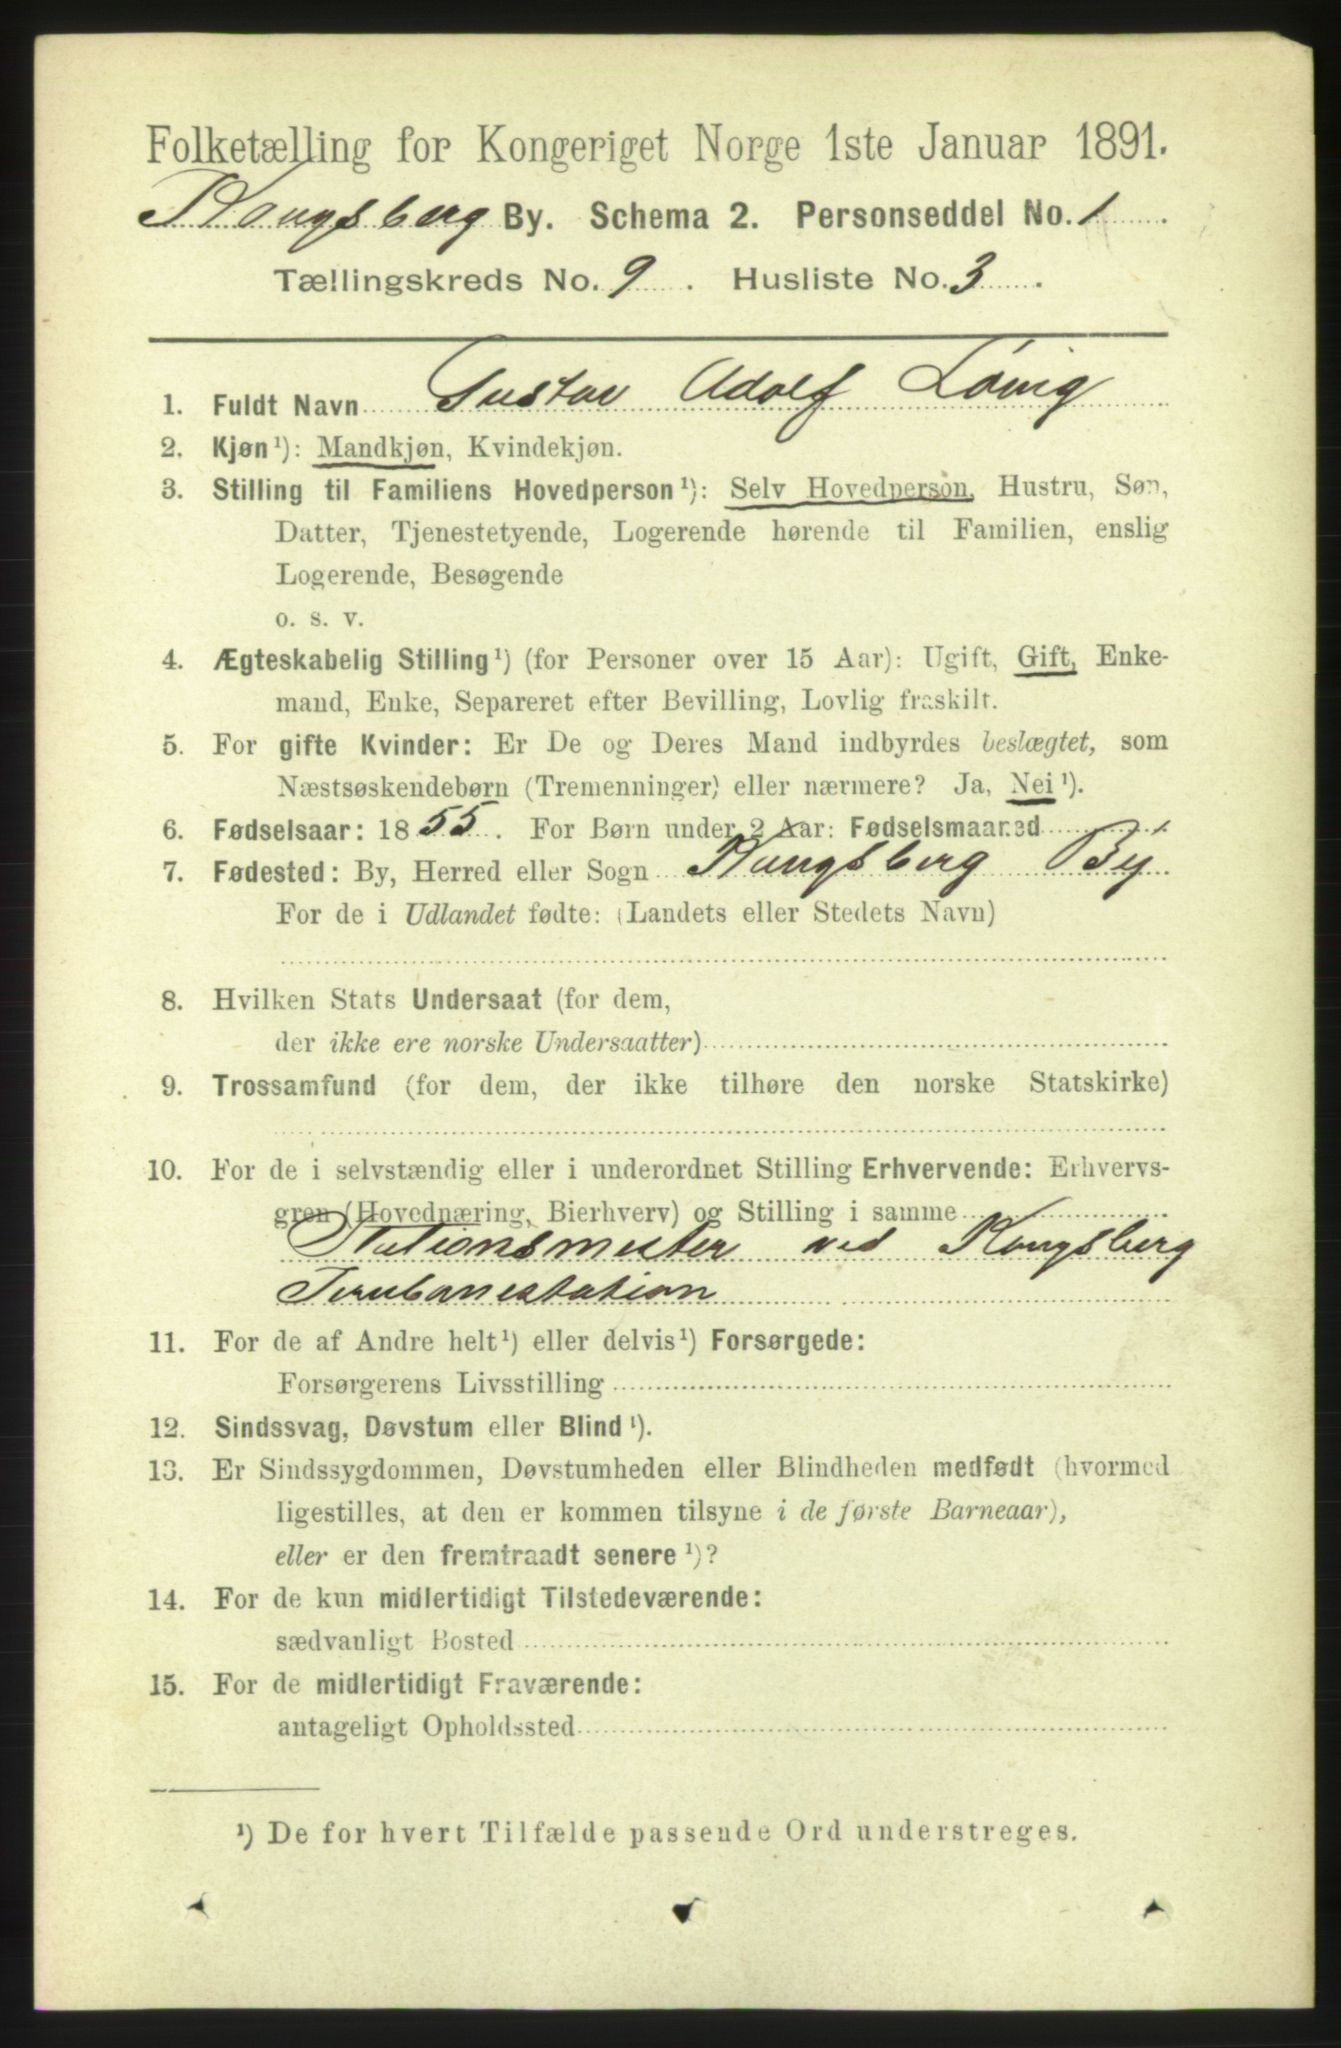 Folketælling for Kongeriget Norge 1ste Januar 1891.
Kongsberg By. Schema 2. Personseddel No. 1.
Tællingskreds No. 9. Husliste No. 3.
1. Fuldt Navn Gustav Adolf Lövig
2. Kjøn¹): Mandkjøn, Kvindekjøn.
3. Stilling til Familiens Hovedperson¹): Selv Hovedperson, Hustru, Søn,
Datter, Tjenestetyende, Logerende hørende til Familien, enslig
Logerende, Besøgende
o. s. v.
4. Ægteskabelig Stilling¹) (for Personer over 15 Aar): Ugift, Gift, Enke-
mand, Enke, Separeret efter Bevilling, Lovlig fraskilt.
5. For gifte Kvinder: Er De og Deres Mand indbyrdes beslægtet, som
Næstsøskendebørn (Tremenninger) eller nærmere? Ja, Nei¹).
6. Fødselsaar: 1855. For Børn under 2 Aar: Fødselsmaaned
7. Fødested: By, Herred eller Sogn Kongsberg By
For de i Udlandet fødte: (Landets eller Stedets Navn)
8. Hvilken Stats Undersaat (for dem,
der ikke ere norske Undersaatter)
9. Trossamfund (for dem, der ikke tilhøre den norske Statskirke)
10. For de i selvstændig eller i underordnet Stilling Erhvervende: Erhvervs-
gren (Hovednæring, Bierhverv) og Stilling i samme
Stationsmester ved Kongsberg
Jernbanestation
11. For de af Andre helt¹) eller delvis¹) Forsørgede:
Forsørgerens Livsstilling
12. Sindssvag, Døvstum eller Blind¹).
13. Er Sindssygdommen, Døvstumheden eller Blindheden medfødt (hvormed
ligestilles, at den er kommen tilsyne i de første Barneaar),
eller er den fremtraadt senere¹)?
14. For de kun midlertidigt Tilstedeværende:
sædvanligt Bosted
15. For de midlertidigt Fraværende:
antageligt Opholdssted
¹) De for hvert Tilfælde passende Ord understreges.